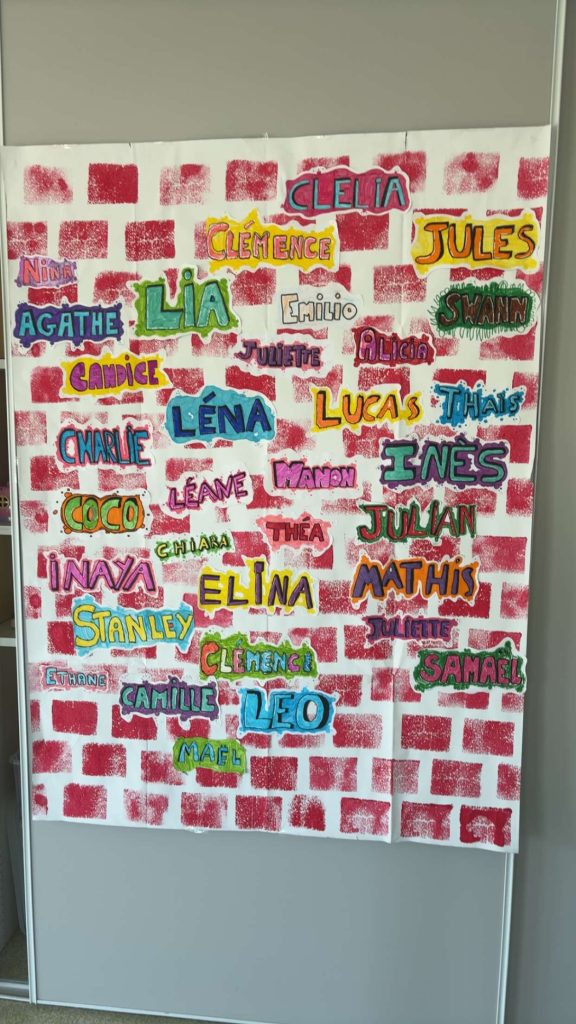 CLELIA
CLÉMENCE
JULES
NINA
LIA
EMILIO
SWANN
AGATHE
JULIETTE
ALICIA
CANDICE
LÉNA
LUCAS
THAIS
CHARLIE
LÉANE
MANON
INÈS
COCO
CHIARA
THÉA
JULIAN
INAYA
ELINA
MATHIS
STANLEY
JULIETTE
CLEMENCE
SAMAËL
ETHANE
CAMILLE
LEO
MAEL